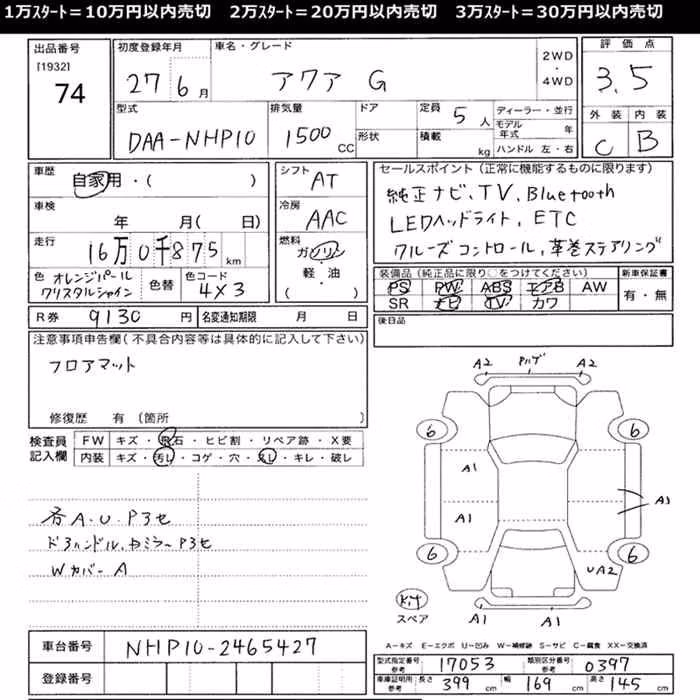 1万スタート＝10万円以内売切 2万スタート＝20万円以内売切 3万スタート＝30万円以内売切
出品番号 初度登録年月 車名・グレード 評価点
[1932] 74 27年6月 アクア G 2WD・4WD 3.5
型式 排気量 ドア 定員 5人 ディーラー・並行 外装 内装
DAA-NHP10 1500CC 形状 積載 kg モデル年式 年 C B
ハンドル 左・右
車歴 自家用・( ) シフト AT セールスポイント(正常に機能するものに限ります)
車検 年 月( 日) 冷房 AAC 純正ナビ、TV、Bluetooth
LEDヘッドライト、ETC
走行 16万0千875km 燃料 ガソリン・軽・油 ( ) クルーズコントロール、革巻ステアリング
色 オレンジパールクリスタルシャイン 色替 色コード 4X3 装備品(純正品に限り○をつけてください) 新車保証書
PS PW ABS エアB AW 有・無
SR ナビ TV カワ
R券 9130円 名変通知期限 月 日 後日品
注意事項申告欄(不具合内容等は具体的に記入して下さい)
フロアマット
修復歴 有 (箇所
検査員記入欄 FW キズ・飛石・ヒビ割・リペア跡・X要
内装 キズ・汚レ・コゲ・穴・スレ・キレ・破レ
各A.U.P3セ
ドアハンドル、ドミラーP3セ
WカバーA
A2 A2
6 6
A1
A1 A1
6 6
UA2
Kit
スペア A1 A1
車台番号 NHP10-2465427
登録番号
A－キズ E－エクボ U－凹み W－補修跡 S－サビ C－腐食 XX－交換済
型式指定番号 参考 17053 類別区分番号 参考 0397
車庫証明用 参考 長さ 399cm 幅 169cm 高さ 145cm